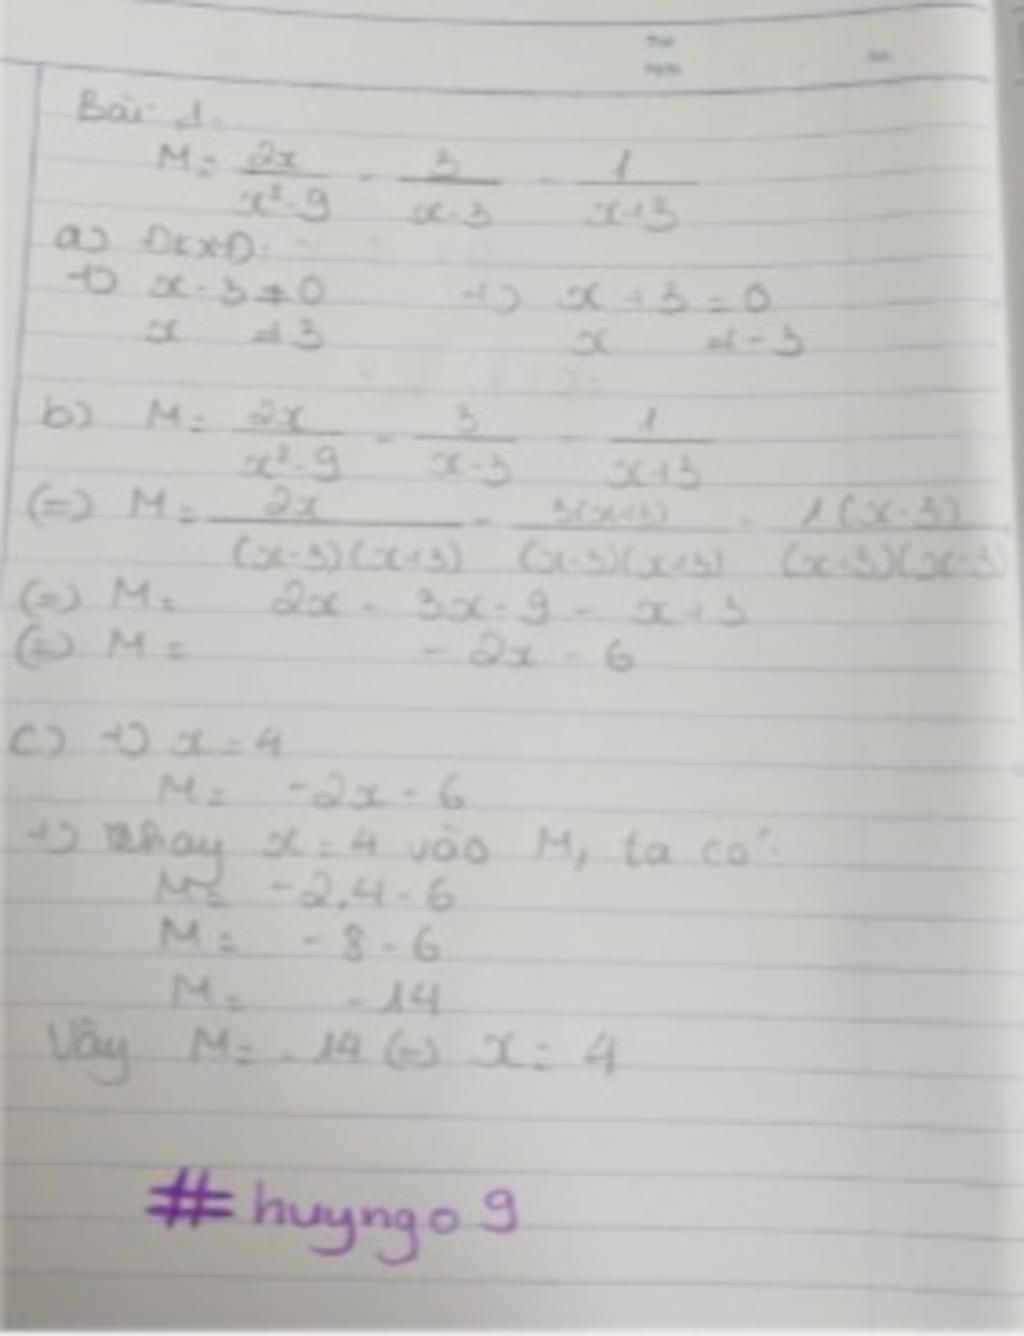 Bài 1.
M = 2x/x²-9 - 3/x-3 - 1/x+3
a) ĐKXĐ:
+) x - 3 ≠ 0 +) x + 3 = 0
x ≠ 3 x ≠ -3
b) M = 2x/x²-9 - 3/x-3 - 1/x+3
(=) M = 2x/(x-3)(x+3) - 3(x+3)/(x-3)(x+3) - 1(x-3)/(x+3)(x-3)
(=) M = 2x - 3x - 9 - x + 3
(=) M = - 2x - 6
c) +) x = 4
M = -2x - 6
+) Thay x = 4 vào M, ta có:
M = -2.4 - 6
M = - 8 - 6
M = - 14
Vậy M = -14 (=) x = 4
#huyngo9